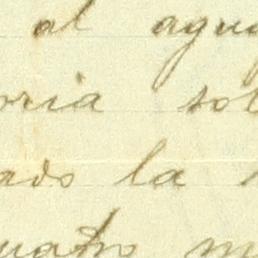 al agu
oria sob
ado la
uatro m